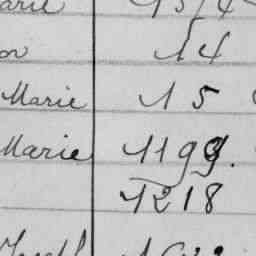 arie 1374
or 14
Marie 15
Marie 1199.
1218